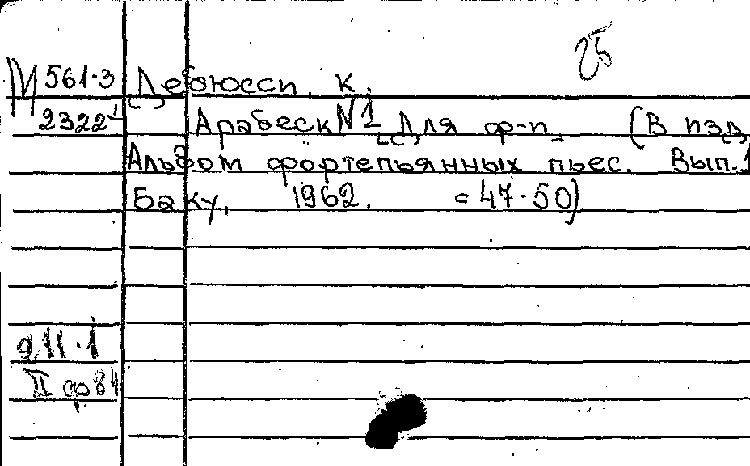 25
М 561-3 Дебюсси, К.
2322 1 Арабеск №1 Для ф-п. (В изд.
Альбом фортепьянных пьес. Вып. 1
Баку, 1962. с 47-50)
9.11.1
II ф 84